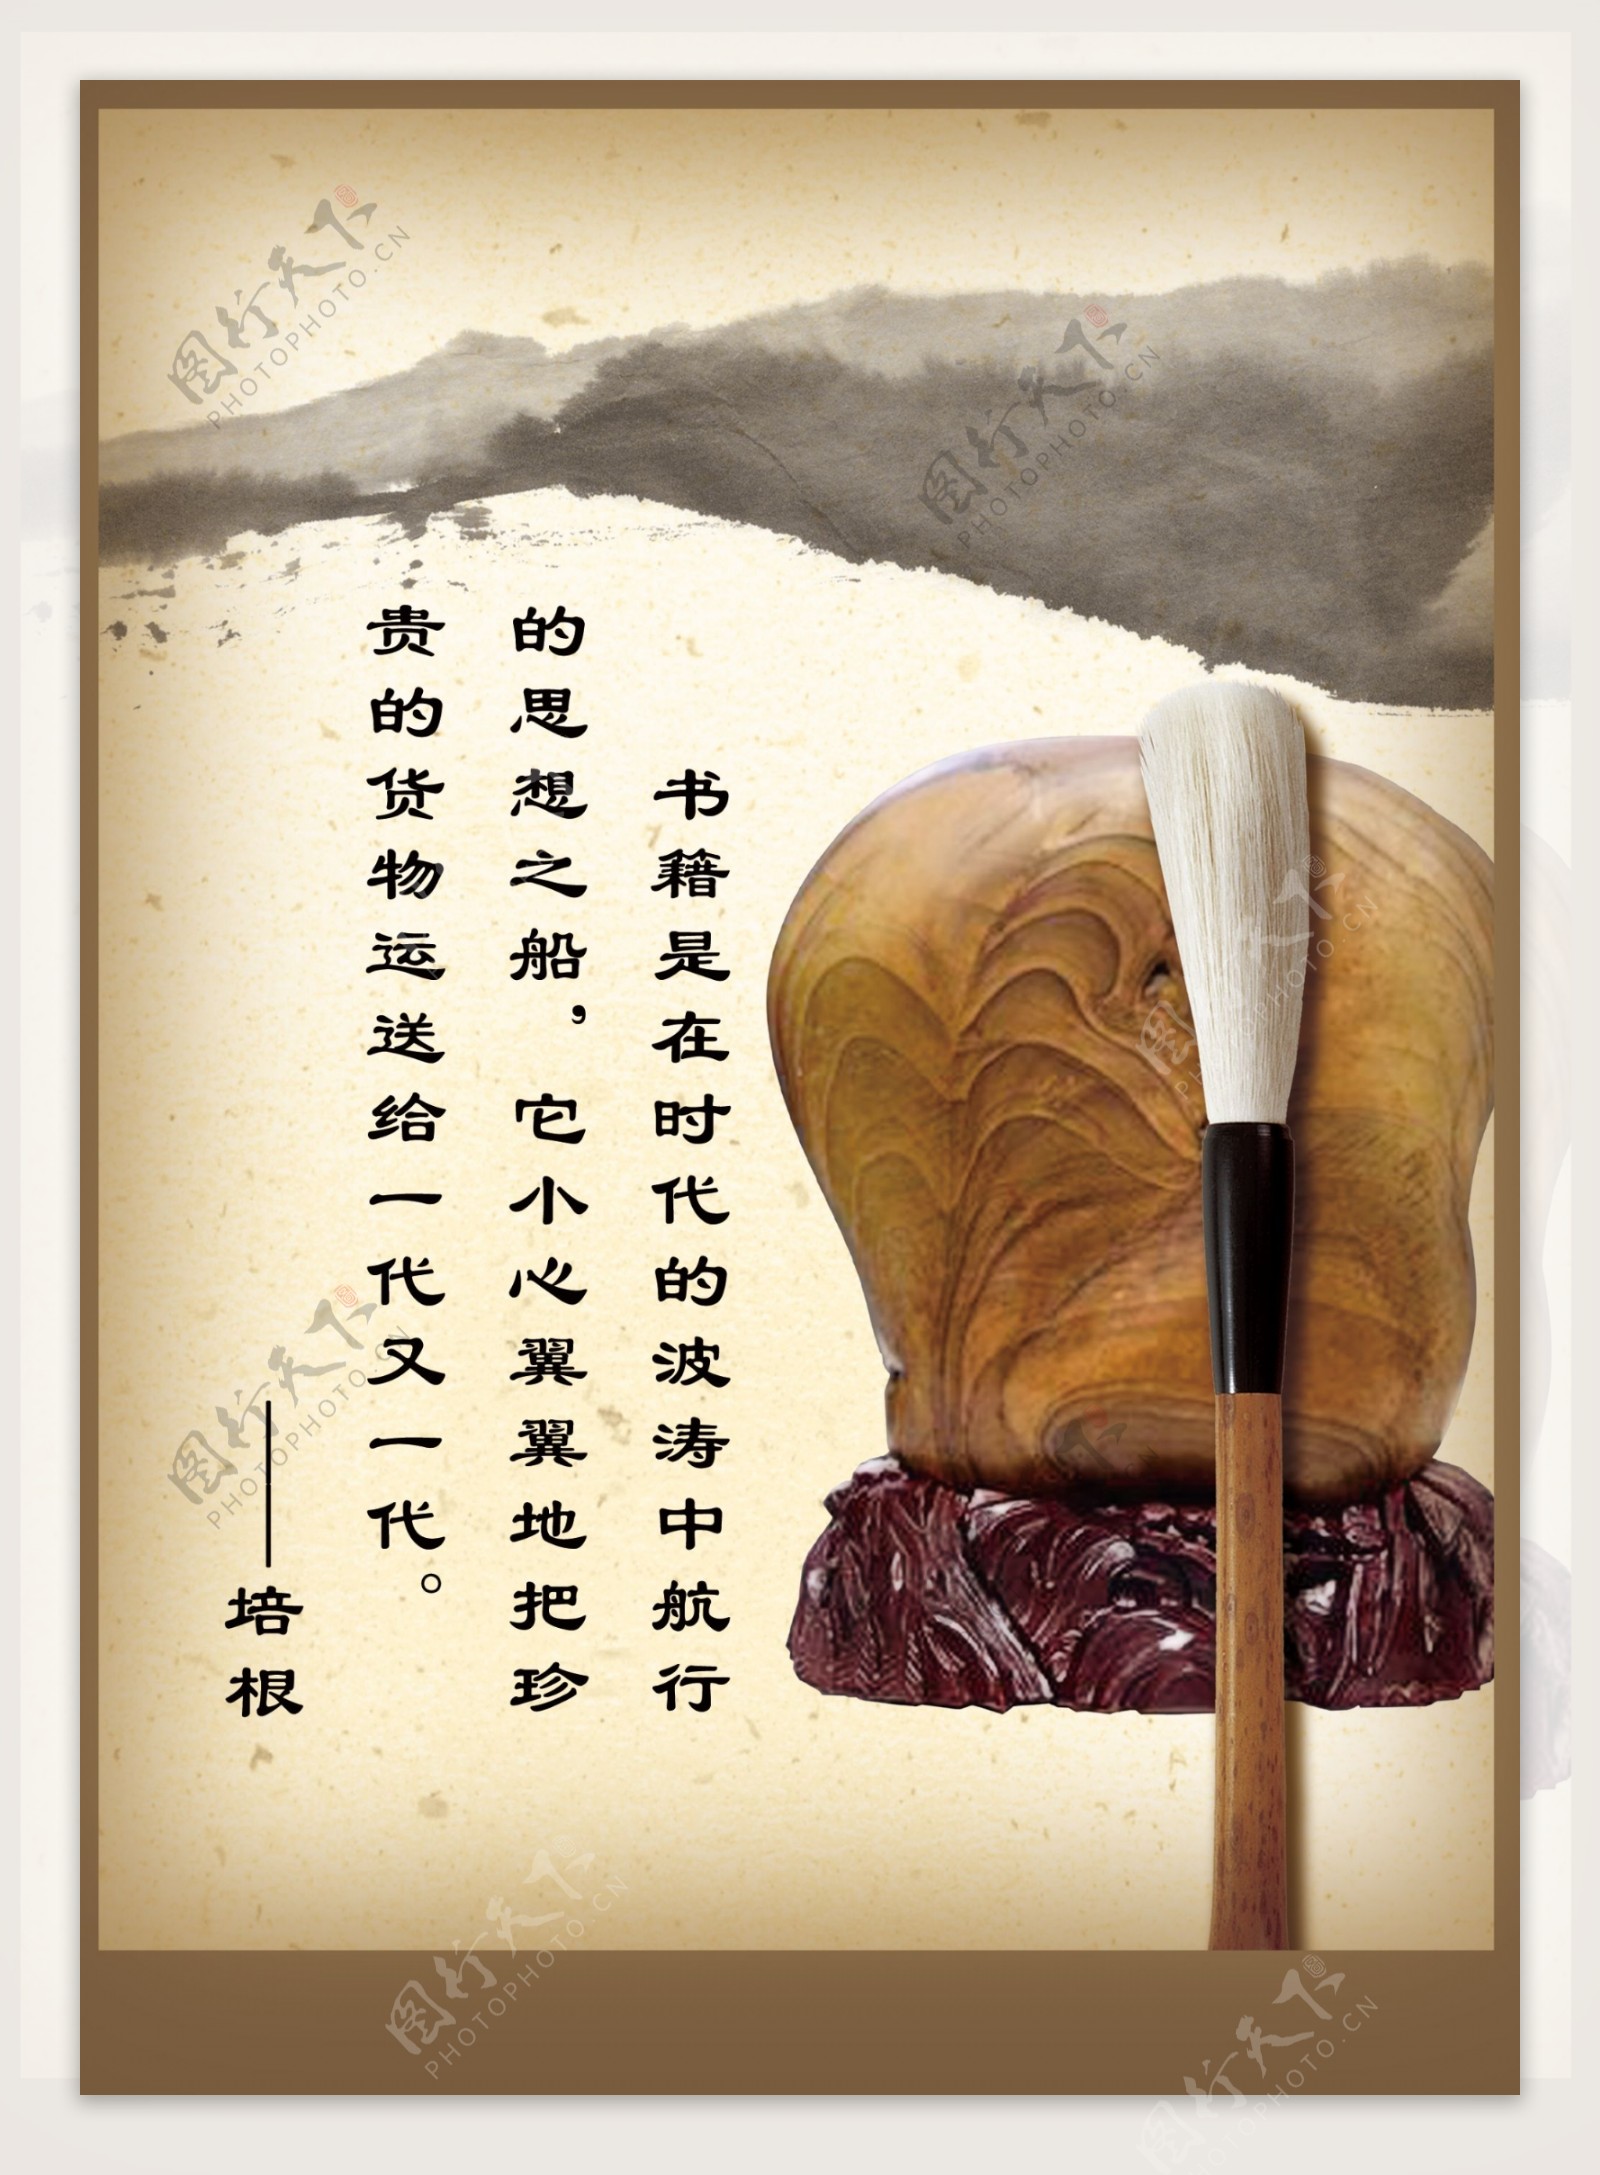 书籍是在时代的波涛中航行
的思想之船，它小心翼翼地把珍
贵的货物运送给一代又一代。
——培根
图行天下
PHOTOPHOTO.CN
图行天下
PHOTOPHOTO.CN
图行天下
PHOTOPHOTO.CN
图行天下
PHOTOPHOTO.CN
图行天下
PHOTOPHOTO.CN
图行天下
PHOTOPHOTO.CN